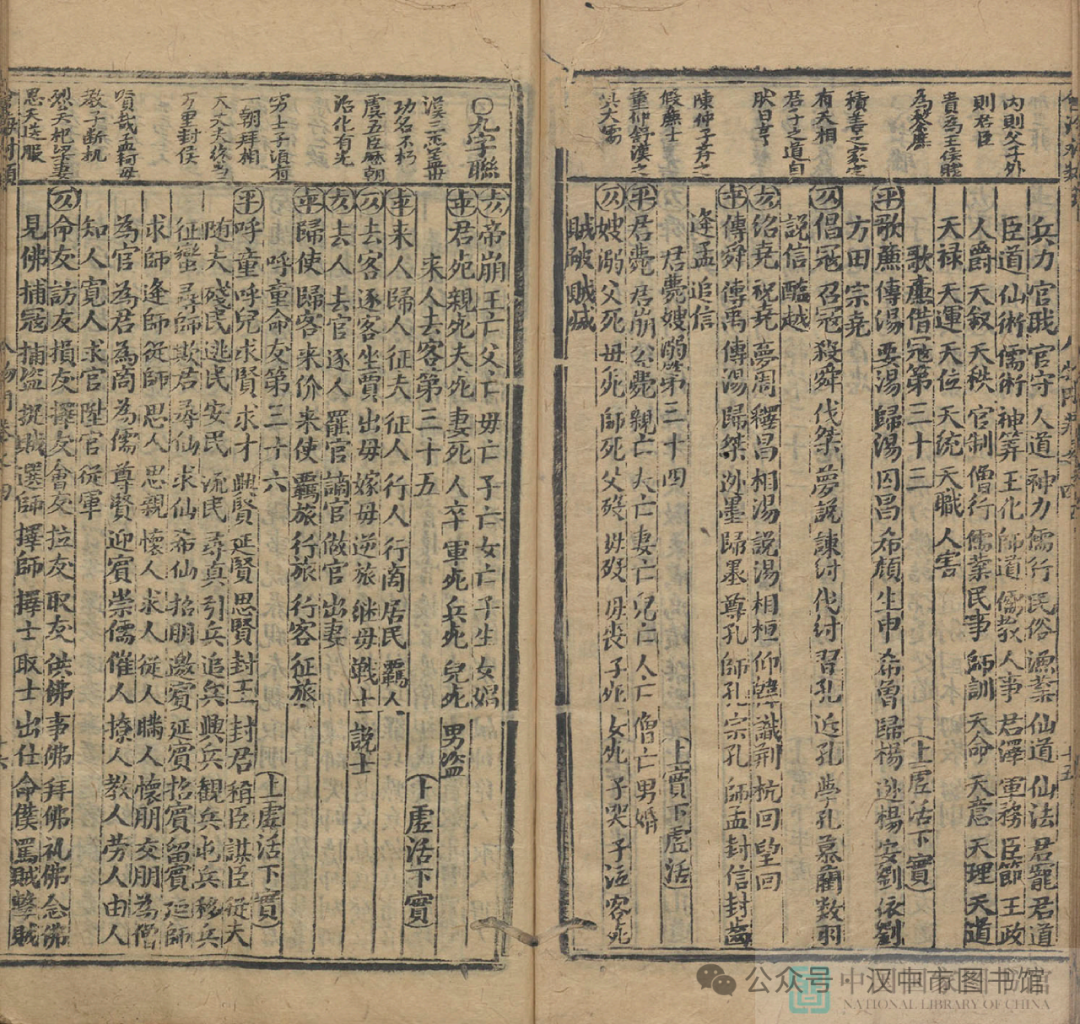 內則父子外
則君臣
貴為王侯賤
為黎庶
積善之家定
有天相
君子之道自
然日亨
陳仲子齊之
假廉士
董仲舒漢之
真大儒
兵力官戢 官守人道神力儒行民俗漁業仙道仙法君寵君道
臣道仙術儒術神筭王化師道儒教人事君澤軍務臣節王政
人爵天叙天秩官制僧行儒業民事師訓天命天意天理天道
天禄天運天位天統天職人害
歌廉借冦第三十三 上虚活下實
平歌廉傳湯要湯歸湯囚昌希顔生申希魯歸楊逃楊安劉依劉
方田宗堯
仄倡冠召冦殺舜伐桀夢説諫紂伐紂習孔近孔學孔慕藺数羽
説信醢越
去佋堯祝堯夢周繹昌相湯説湯相桓仰韓識荆杭回望回
平傳舜傳禹傳湯歸桀逃墨歸墨尊孔師孔宗孔師孟封信封齒
逢孟追信
君薨嫂溺第三十四 上實下虚活
平君薨君崩公薨親亡夫亡妻亡兒亡人亡僧亡男婚
仄嫂溺父死母死師死父歿母歿母喪子死女死子哭子泣客死
賊破賊滅
○九字聯
漢三傑蓋世
功名不朽
虞五臣歷朝
治化有光
窮士子須有
一朝拜相
大丈夫終當
万里封侯
賢哉孟軻母
教子断机
烈矣杞梁妻
思夫送服
去帝崩王亡父亡母亡子亡女亡子生女娼
平君死親死夫死妻死人卒軍死兵死兒死男盗
来人去客第三十五 下虚活下實
平来人歸人征夫征人行人行商居民羈人
仄去客逐客坐賈出母嫁母逆旅継母戰士説士
去去人去官逐人羅官謫官做官出妻
平歸使歸客来价来使羈旅行旅行客征旅
呼童命友第三十六 上虚活下實
平呼童呼兒求賢求才興賢延賢思賢封王封君稱臣謀臣従夫
随夫殘民逃民安民流民尋真引兵追兵興兵観兵屯兵移兵
征蠻尋師欺君尋仙求仙希仙招朋邀賓延賓招賓留賓延師
求師逢師從師思人思親懷人求人従人瞞人懷朋交朋為僧
為官為君為商為儒尊賢迎賓崇儒催人撩人教人劳人由人
知人寬人求官陞官従軍
仄命友訪友損友擇友會友拉友取友供佛事佛拜佛礼佛念佛
見佛捕冦捕盗捉賊選師擇師擇士取士出仕命僕罵賊擊賊
公众号·中汉中家图书馆
NATIONAL LIBRARY OF CHINA